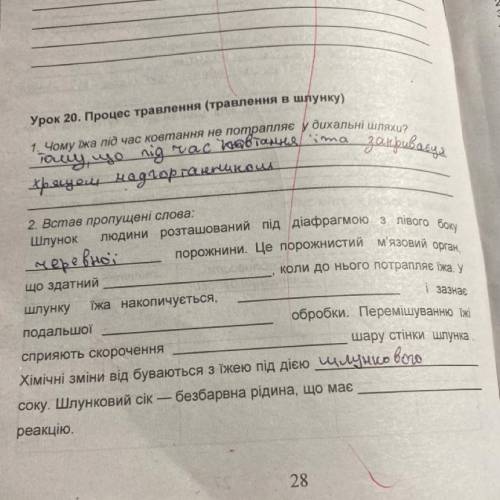 Урок 20. Процес травлення (травлення в шлунку)
1. Чому їжа під час ковтання не потрапляє у дихальні шляхи?
тому, що під час ковтання їжа закривається
хрящем надгортанником
2. Встав пропущені слова:
Шлунок людини розташований під діафрагмою з лівого боку
черевної порожнини. Це порожнистий м'язовий орган,
що здатний , коли до нього потрапляє їжа. У
шлунку їжа накопичується, і зазнає
подальшої обробки. Перемішуванню їжі
сприяють скорочення шару стінки шлунка.
Хімічні зміни від буваються з їжею під дією шлункового
соку. Шлунковий сік — безбарвна рідина, що має
реакцію.
28